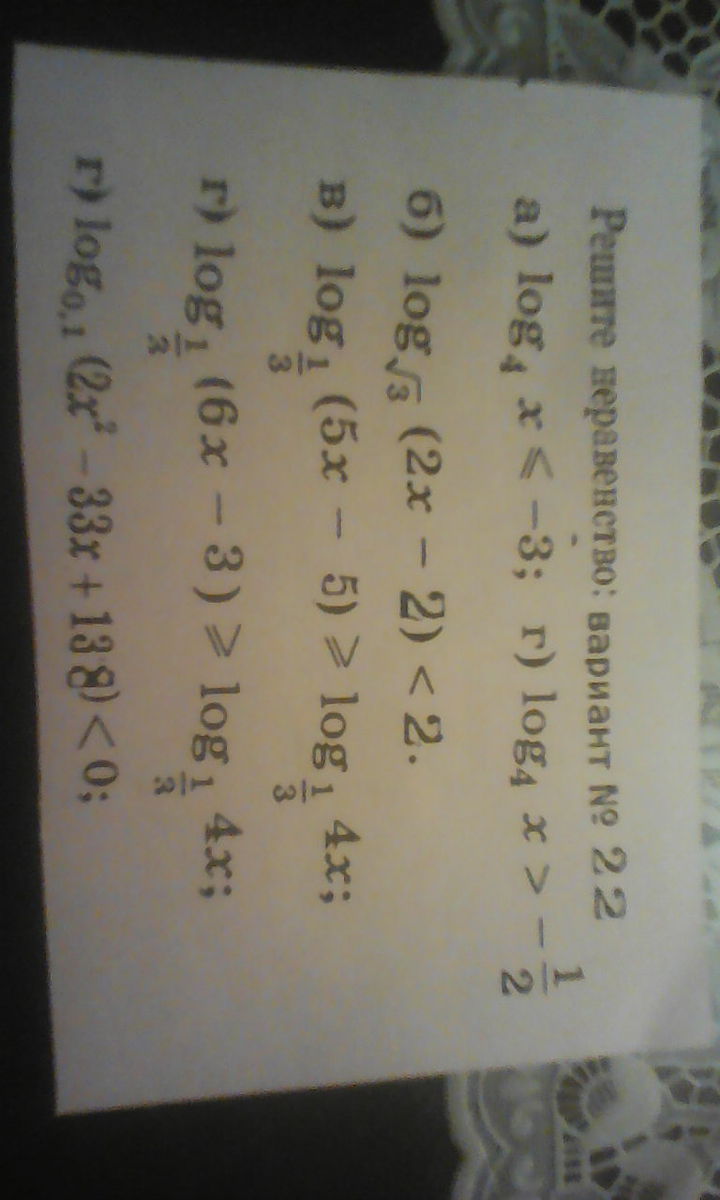 Решите неравенство: вариант № 22
а) log₄ x ⩽ -3; г) log₄ x > -1/2
б) log_√3 (2x - 2) < 2.
в) log_1/3 (5x - 5) ⩾ log_1/3 4x;
г) log_1/3 (6x - 3) ⩾ log_1/3 4x;
г) log₀,₁ (2x² - 33x + 138) < 0;